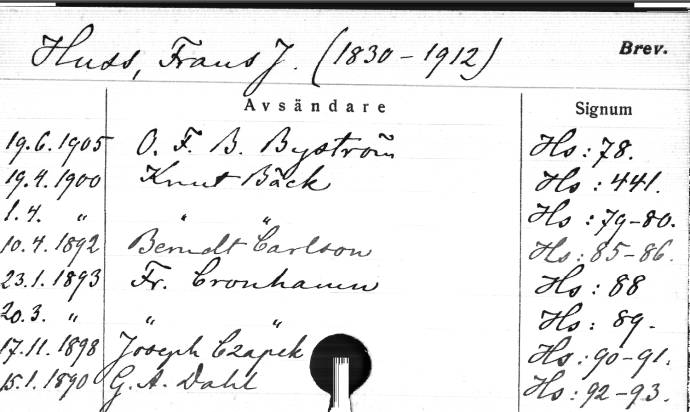 Huss, Frans J. (1830-1912) Brev.
Avsändare Signum
19.6.1905 O. F. B. Byström Hs: 78.
19.4.1900 Knut Bäck Hs: 441.
1.4. " " " Hs: 79-80.
10.4.1892 Berndt Carlson Hs: 85-86.
23.1.1893 Fr. Cronhamn Hs: 88
20.3. " " " Hs: 89.
17.11.1898 Joseph Czapek Hs: 90-91.
15.1.1890 G. A. Dahl Hs: 92-93.